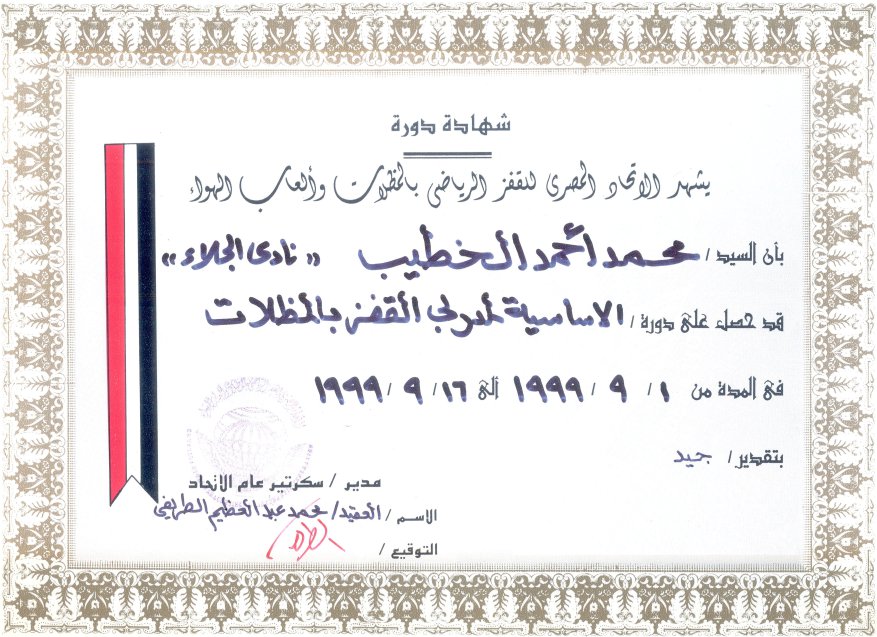 شهادة دورة
يشهد الاتحاد المصرى للقفز الرياضى بالمظلات وألعاب الهواء
بأن السيد / محمد أحمد الخطيب « نادى الجلاء »
قد حصل على دورة / الاساسية لمدربى القفز بالمظلات
فى المدة من ١ / ٩ / ١٩٩٩ الى ١٦ / ٩ / ١٩٩٩
بتقدير / جيد
مدير / سكرتير عام الاتحاد
الاسم / العقيد / محمد عبد العظيم الطريفى
التوقيع /